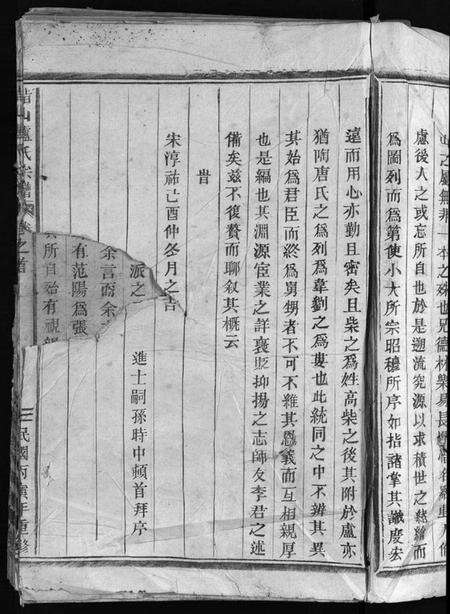 慮後人之或忘所自也於是遡流究源以求積世之
爲圖列而爲第使小大所宗昭穆所序如指諸掌其
遠而用心亦勤且密矣且柴之爲姓高柴之後其附於盧亦
猶陶唐氏之爲列爲韋劉之爲婁也此統同之中不辨其異
其始爲君臣而終爲舅甥者不可不維其恩義而互相親厚
也是編也其淵源宦業之詳襃貶抑揚之志師友李君之述
備矣兹不復贅而聊叙其概云
旹
宋淳祐己酉仲冬月之吉
進士嗣孫時中頓首拜序
派之
余言而余
有范陽爲張
所自始有
山盧氏宗譜
卷之首
民國丙寅年重修